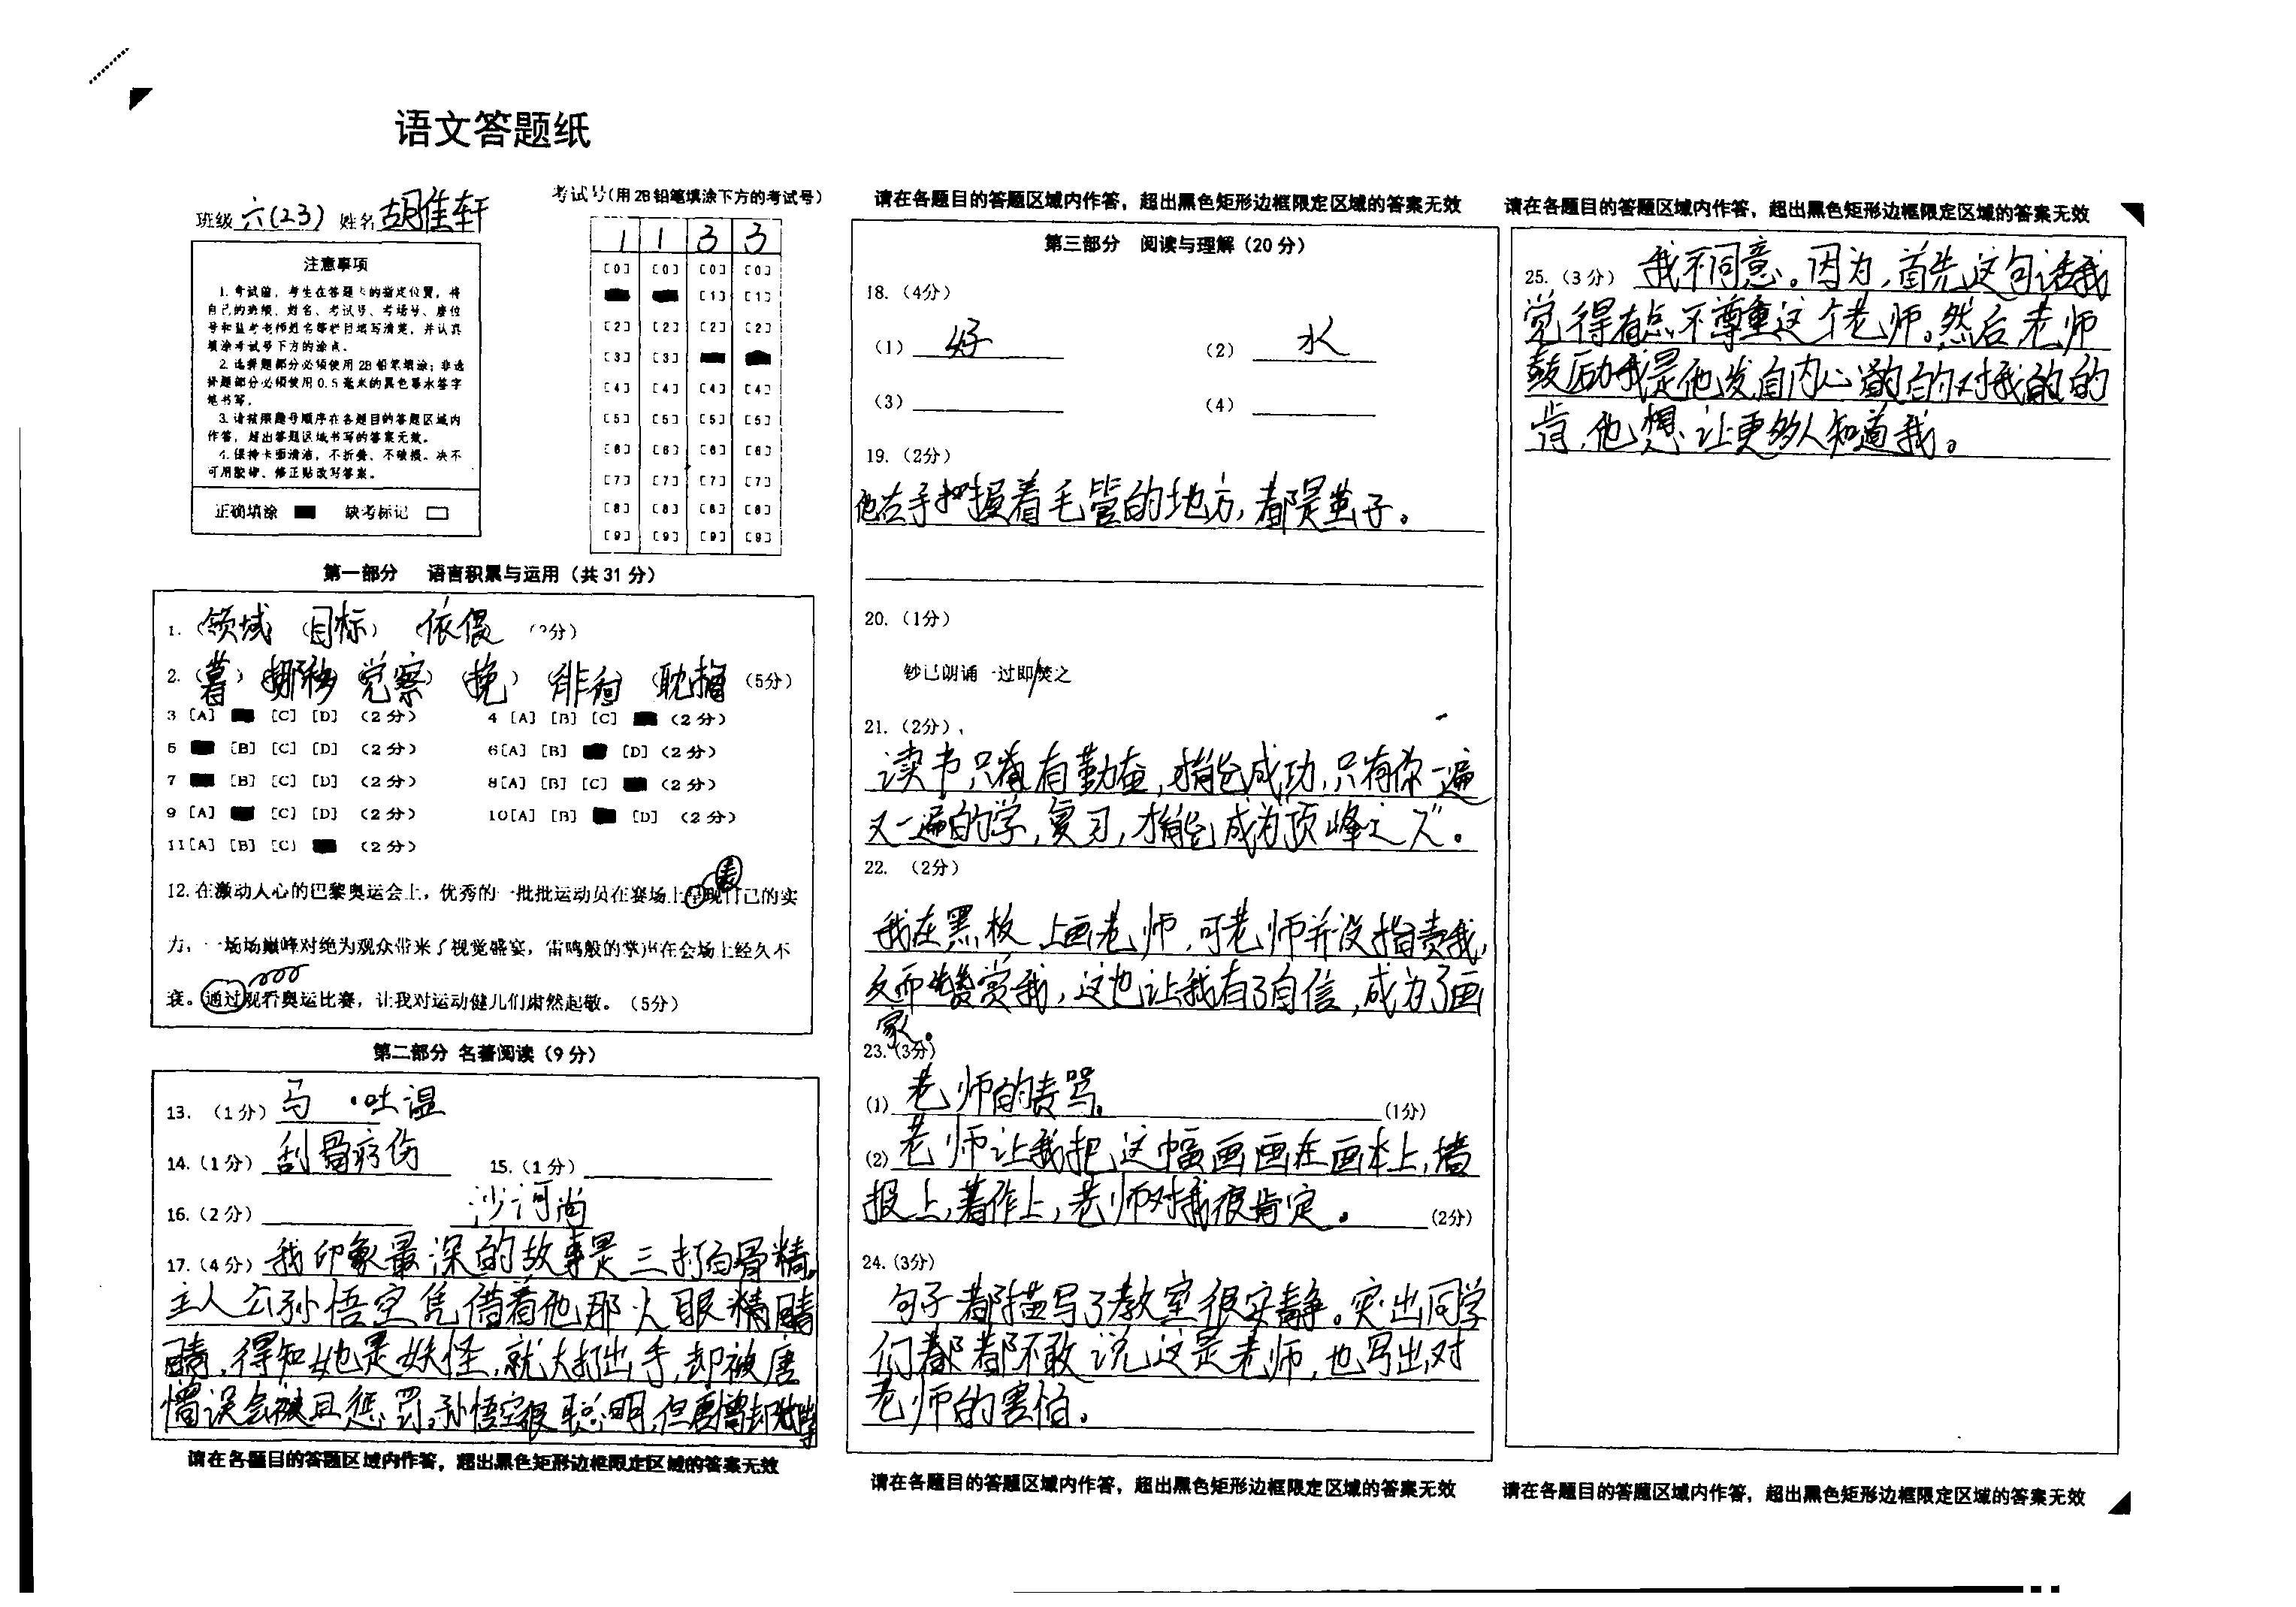 语文答题纸
班级 六(23) 姓名 胡佳轩
考试号(用2B铅笔填涂下方的考试号)
1 1 3 3
[0] [0] [0] [0]
[1] [1]
[2] [2] [2] [2]
[3] [3]
[4] [4] [4] [4]
[5] [5] [5] [5]
[6] [6] [6] [6]
[7] [7] [7] [7]
[8] [8] [8] [8]
[9] [9] [9] [9]
注意事项
1. 考试前，考生在答题卡的指定位置，将
自己的班级、姓名、考试号、考场号、座位
号和监考老师姓名等栏目填写清楚，并认真
填涂考试号下方的涂点。
2. 选择题部分必须使用2B铅笔填涂；非选
择题部分必须使用0.5毫米的黑色墨水签字
笔书写。
3. 请按照题号顺序在各题目的答题区域内
作答，超出答题区域书写的答案无效。
4. 保持卡面清洁，不折叠、不破损。决不
可用胶带、修正贴改写答案。
正确填涂 缺考标记
第一部分 语言积累与运用（共31分）
1. (领域 (目标) (依偎 (3分)
2. (暮) (挪移) (觉察) (挽) (徘徊) (耽搁 (5分)
3 [A] [C] [D] (2分) 4 [A] [B] [C] (2分)
5 [B] [C] [D] (2分) 6[A] [B] [D] (2分)
7 [B] [C] [D] (2分) 8[A] [B] [C] (2分)
9 [A] [C] [D] (2分) 10[A] [B] [D] (2分)
11[A] [B] [C] (2分)
12. 在激动人心的巴黎奥运会上，优秀的一批批运动员在赛场上呈现自己的实
力，一场场巅峰对绝为观众带来了视觉盛宴，雷鸣般的掌声在会场上经久不
衰。通过观看奥运比赛，让我对运动健儿们肃然起敬。（5分）
第二部分 名著阅读（9分）
13. （1分）马·吐温
14. （1分）刮骨疗伤 15. （1分）
16. （2分） 沙河尚
17. （4分）我印象最深的故事是三打白骨精。
主人公孙悟空凭借着他那火眼精睛
睛，得知她是妖怪，就大打出手，却被唐
僧误会被且惩罚。孙悟空很聪明，但唐僧却
请在各题目的答题区域内作答，超出黑色矩形边框限定区域的答案无效
请在各题目的答题区域内作答，超出黑色矩形边框限定区域的答案无效
第三部分 阅读与理解（20分）
18. （4分）
（1）好 （2）水
（3） （4）
19. （2分）
他右手握着毛管的地方，都是茧子。
20. （1分）
钞已朗诵一过即/焚之
21. （2分）
读书只有勤奋，才能成功，只有你一遍
又一遍的学，复习，才能成为顶峰之人。
22. （2分）
我在黑板上画老师，可老师并没指责我，
反而赞赏我，这也让我有了自信，成为了画
家。
23. （3分）
(1) 老师的责骂。 (1分)
(2) 老师让我把这幅画画在画本上，墙
报上，著作上，老师对我很肯定。 (2分)
24. (3分)
句子都描写了教室很安静。突出同学
们都都不敢说这是老师，也写出对
老师的害怕。
请在各题目的答题区域内作答，超出黑色矩形边框限定区域的答案无效
请在各题目的答题区域内作答，超出黑色矩形边框限定区域的答案无效
25. （3分）我不同意。因为，首先这句话我
觉得有点不尊重这个老师。然后老师
鼓励我是他发自内心的对我的的
肯，他想让更多人知道我。
请在各题目的答题区域内作答，超出黑色矩形边框限定区域的答案无效